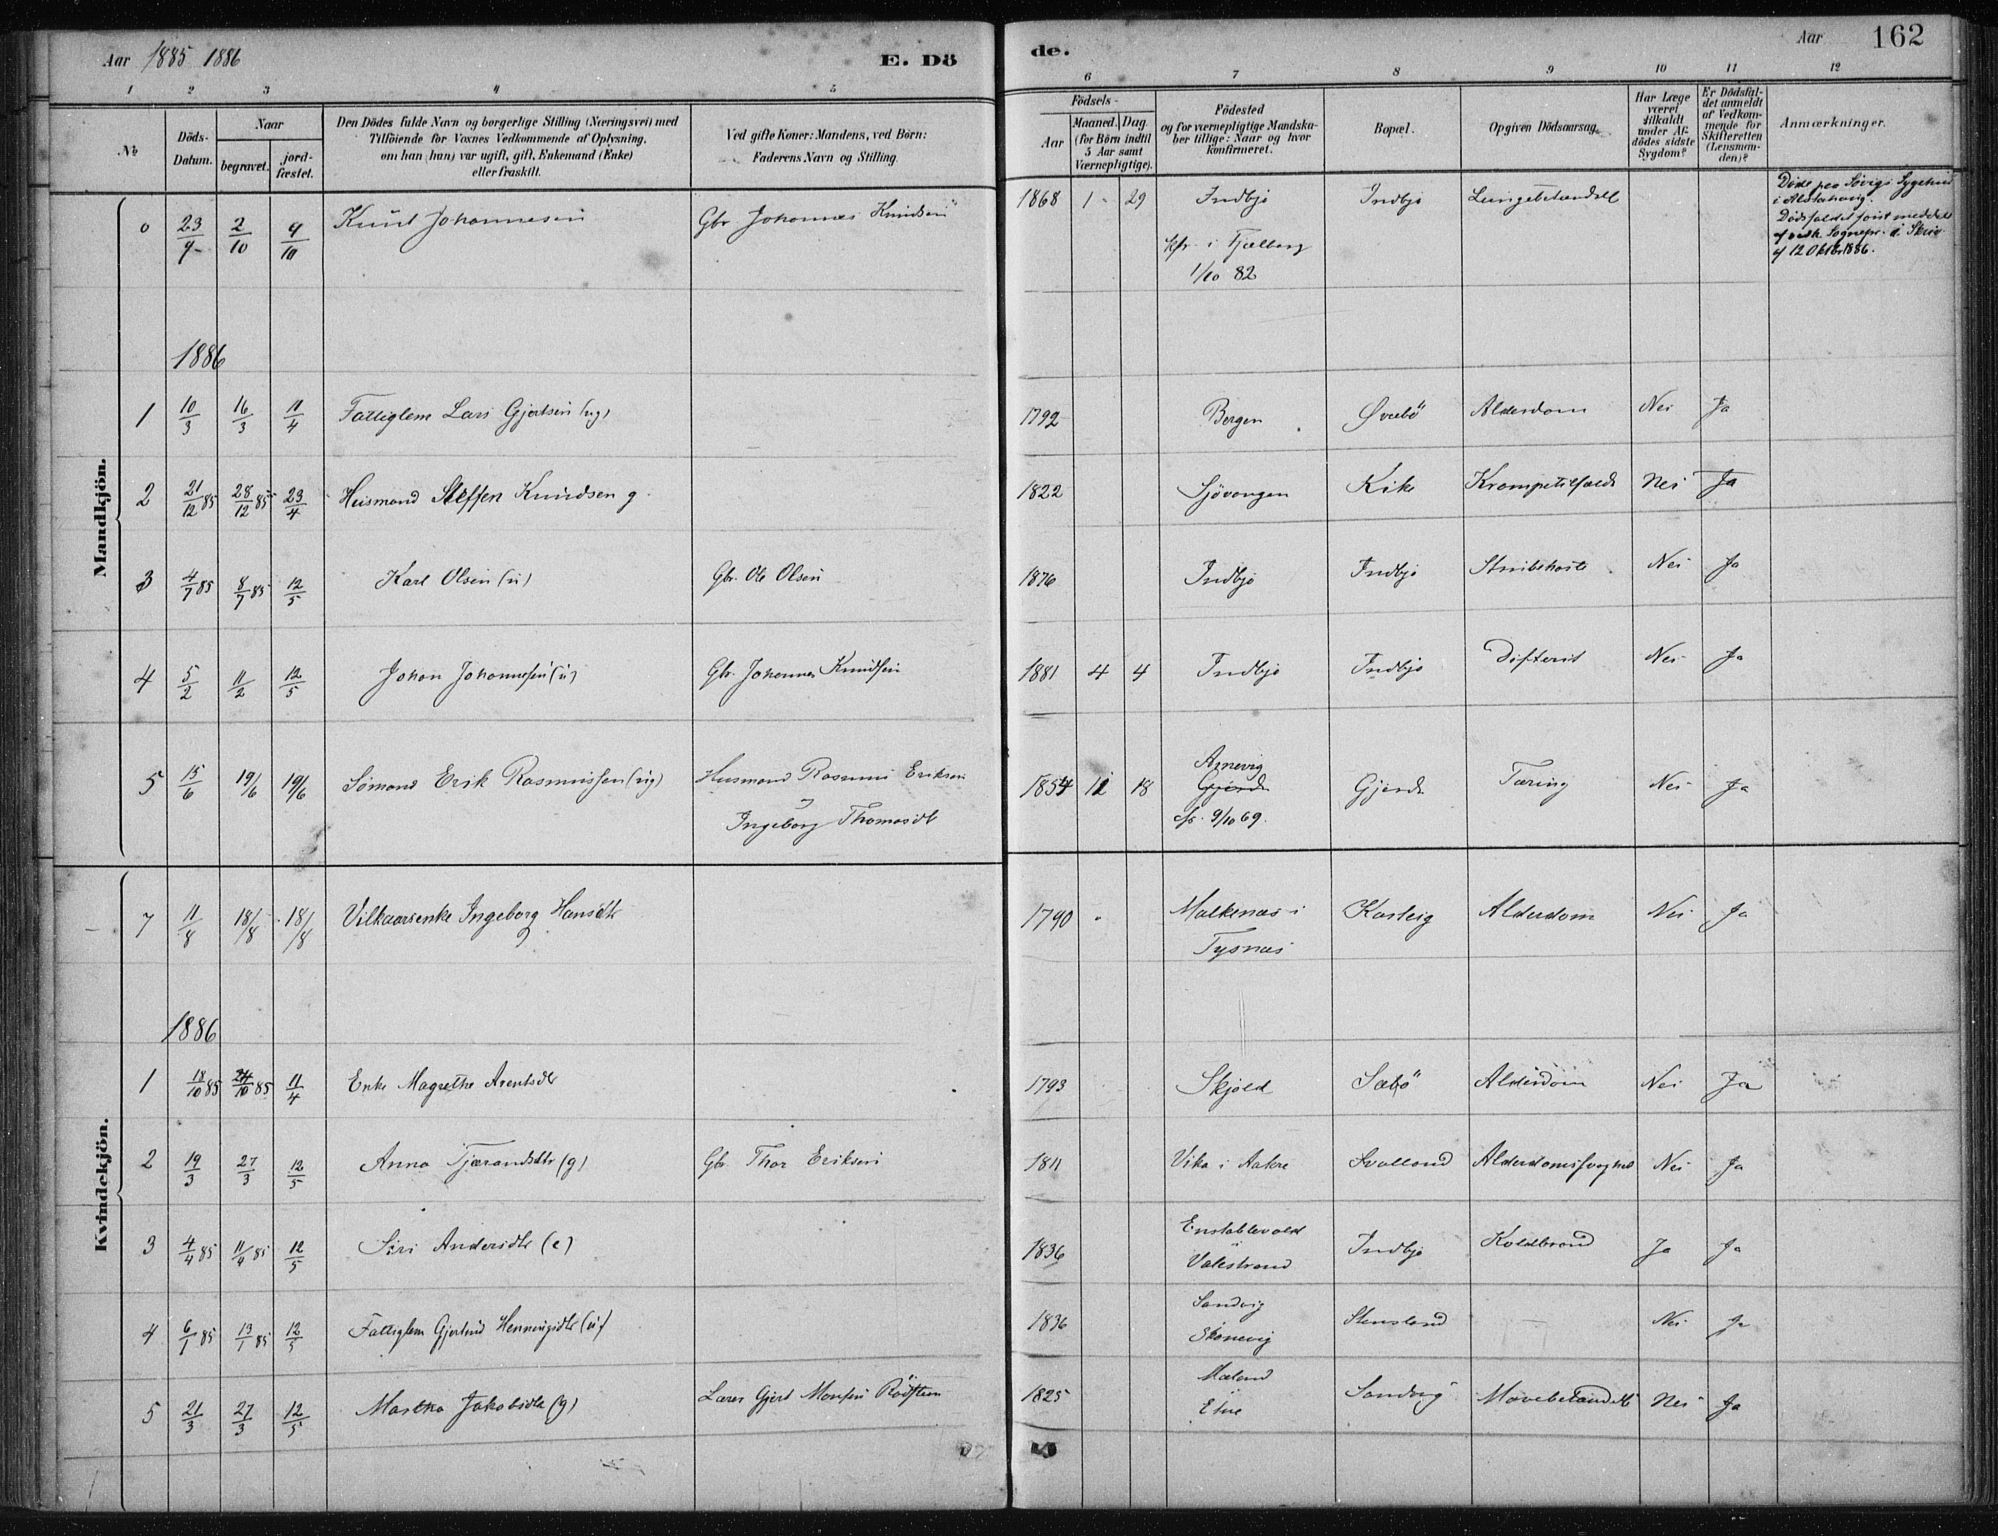 Aar 1885 1886 E. Dö
de. Aar 162
1 2 3 4 5 6 7 8 9 10 11 12
No
Döds-
Datum.
Naar
begravet.
jord-
fæstet.
Den Dödes fulde Navn og borgerlige Stilling (Næringsvei) med
Tilföiende for Voxnes Vedkommende af Oplysning,
om han (hun) var ugift, gift, Enkemand (Enke)
eller fraskilt.
Ved gifte Koner: Mandens, ved Børn:
Faderens Navn og Stilling.
Födsels-
Aar
Maaned. Dag
(for Børn indtil
5 Aar samt
Værnepligtige).
Födested
og for værnepligtige Mandska-
ber tillige: Naar og hvor
konfirmeret.
Bopæl.
Opgiven Dödsaarsag.
Har Læge
været
tilkaldt
under Af-
dödes sidste
Sygdom?
Er Dödsfal-
det anmeldt
af Vedkom-
mende for
Skifteretten
(Lensman-
den)?
Anmærkninger.
Mandkjön.
23/9 2/10 9/10 Knut Johannesen Gbr Johannes Knudsen 1868 1 29 Indbjo Indbjo Lungebetændelse
i Fjelberg
1/10 82
i Alstahaug.
af 12 Oktbr 1886.
1886
1 10/3 16/3 11/4 Fattiglem Lars Gjertsen (ug) 1792 Bergen Øvrebö Alderdom Nei Ja
2 21/12 85 28/12 85 23/4 Husmand Steffen Knudsen g. 1822 Sjövangen Kike Krampetilfælde Nei Ja
3 4/7 85 8/7 85 12/5 Karl Olsen (u) Gbr. Ole Olsen 1876 Indbjo Indbjo Strubehoste Nei Ja
4 5/2 11/2 12/5 Johan Johannesen (u) Gbr. Johannes Knudsen 1881 4 4 Indbjo Indbjo Difterit Nei Ja
5 15/6 19/6 19/6 Sømand Erik Rasmussen (ug) Husmand Rasmus Eriksen 1854 12 18 Arnevig
Gjerde Gjerde Tæring Nei Ja
Ingeborg Thomasdt cfr. 9/10 69.
Kvindekjön.
7 11/8 18/8 18/8 Vilkaarsenke Ingeborg Hansdtr 1790 Malkenæs i
Tysnæs Alderdom Nei Ja
1886
1 18/10 85 24/10 85 11/4 Enke Magrethe Arentsdtr 1793 Skjold Sæbö Alderdom Nei Ja
2 19/3 27/3 12/5 Anna Tjærandsdtr (g) Gbr. Thor Eriksen 1811 Vika i Aakre Svolland Nei Ja
3 4/4 85 11/4 85 12/5 Siri Andersdtr (e) 1836
Valestrand Indbjo Koldbrand Ja Ja
4 6/1 85 13/1 85 12/5 Fattiglem Gjertrud Henningsdtr (u) 1836 Sandvig
Skonevig Stensland Nei Ja
5 21/3 27/3 12/5 Martha Jakobsdtr (g) Lærer Gjert Monsen 1825 Mæland
Etne Sandvig Mavebetændelse Nei Ja